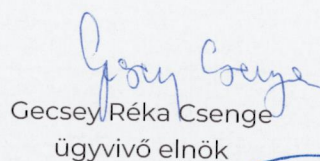 Gecsey Csenge
Gecsey Réka Csenge
ügyvivő elnök